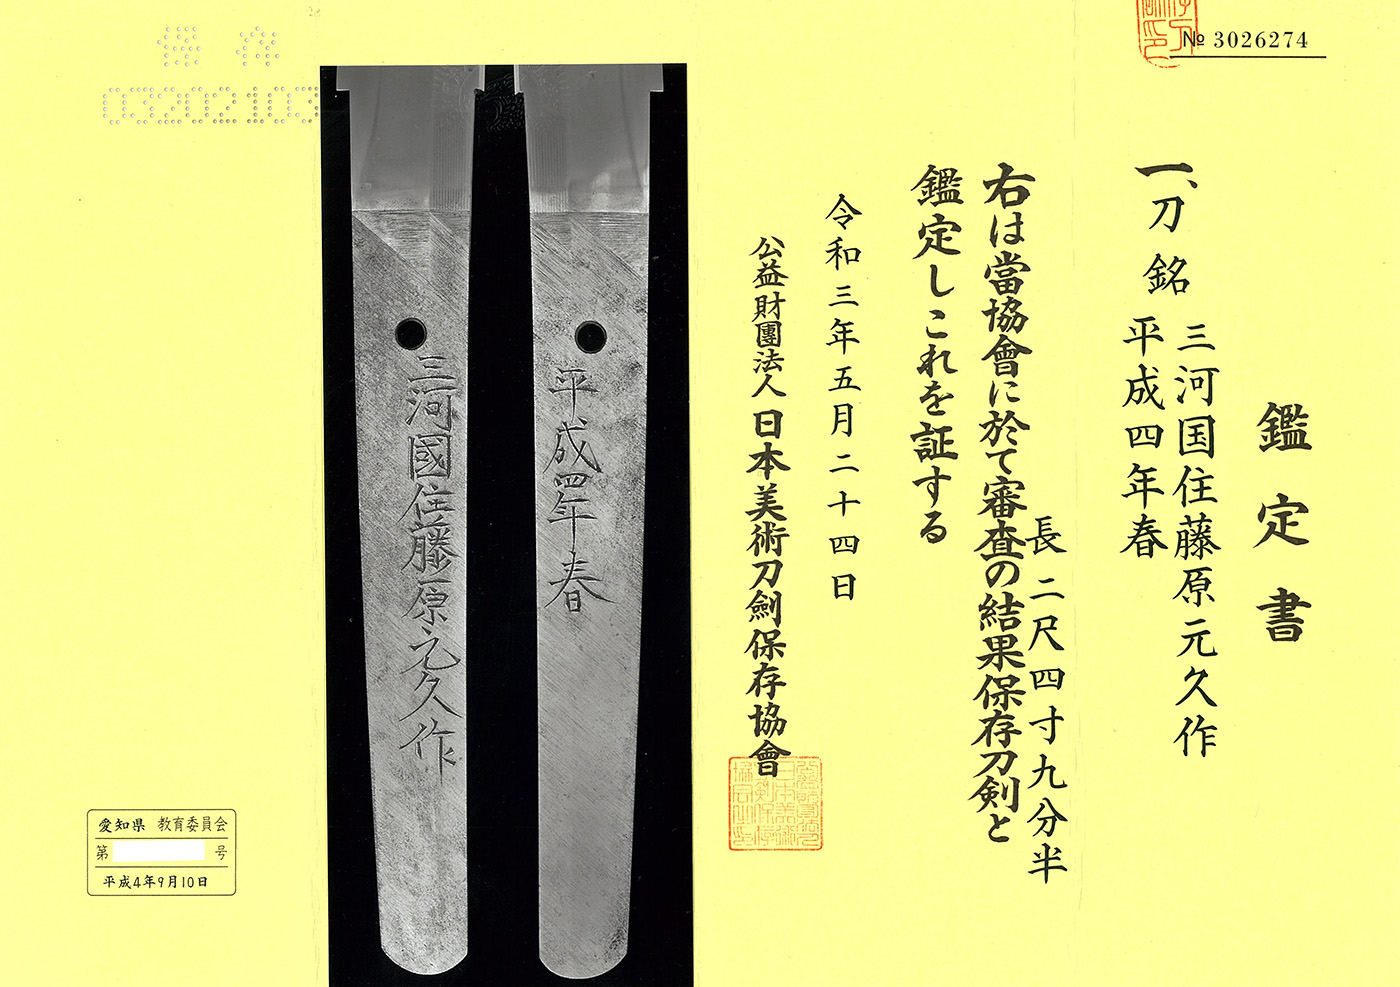 № 3026274
鑑定書
一、刀 銘 三河国住藤原元久作
平成四年春
長二尺四寸九分半
右は當協會に於て審査の結果保存刀剣と
鑑定しこれを証する
令和三年五月二十四日
公益財團法人日本美術刀劍保存協會
平成四年春
三河國住藤原元久作
保存
03202103
愛知県 教育委員会
第 号
平成4年9月10日